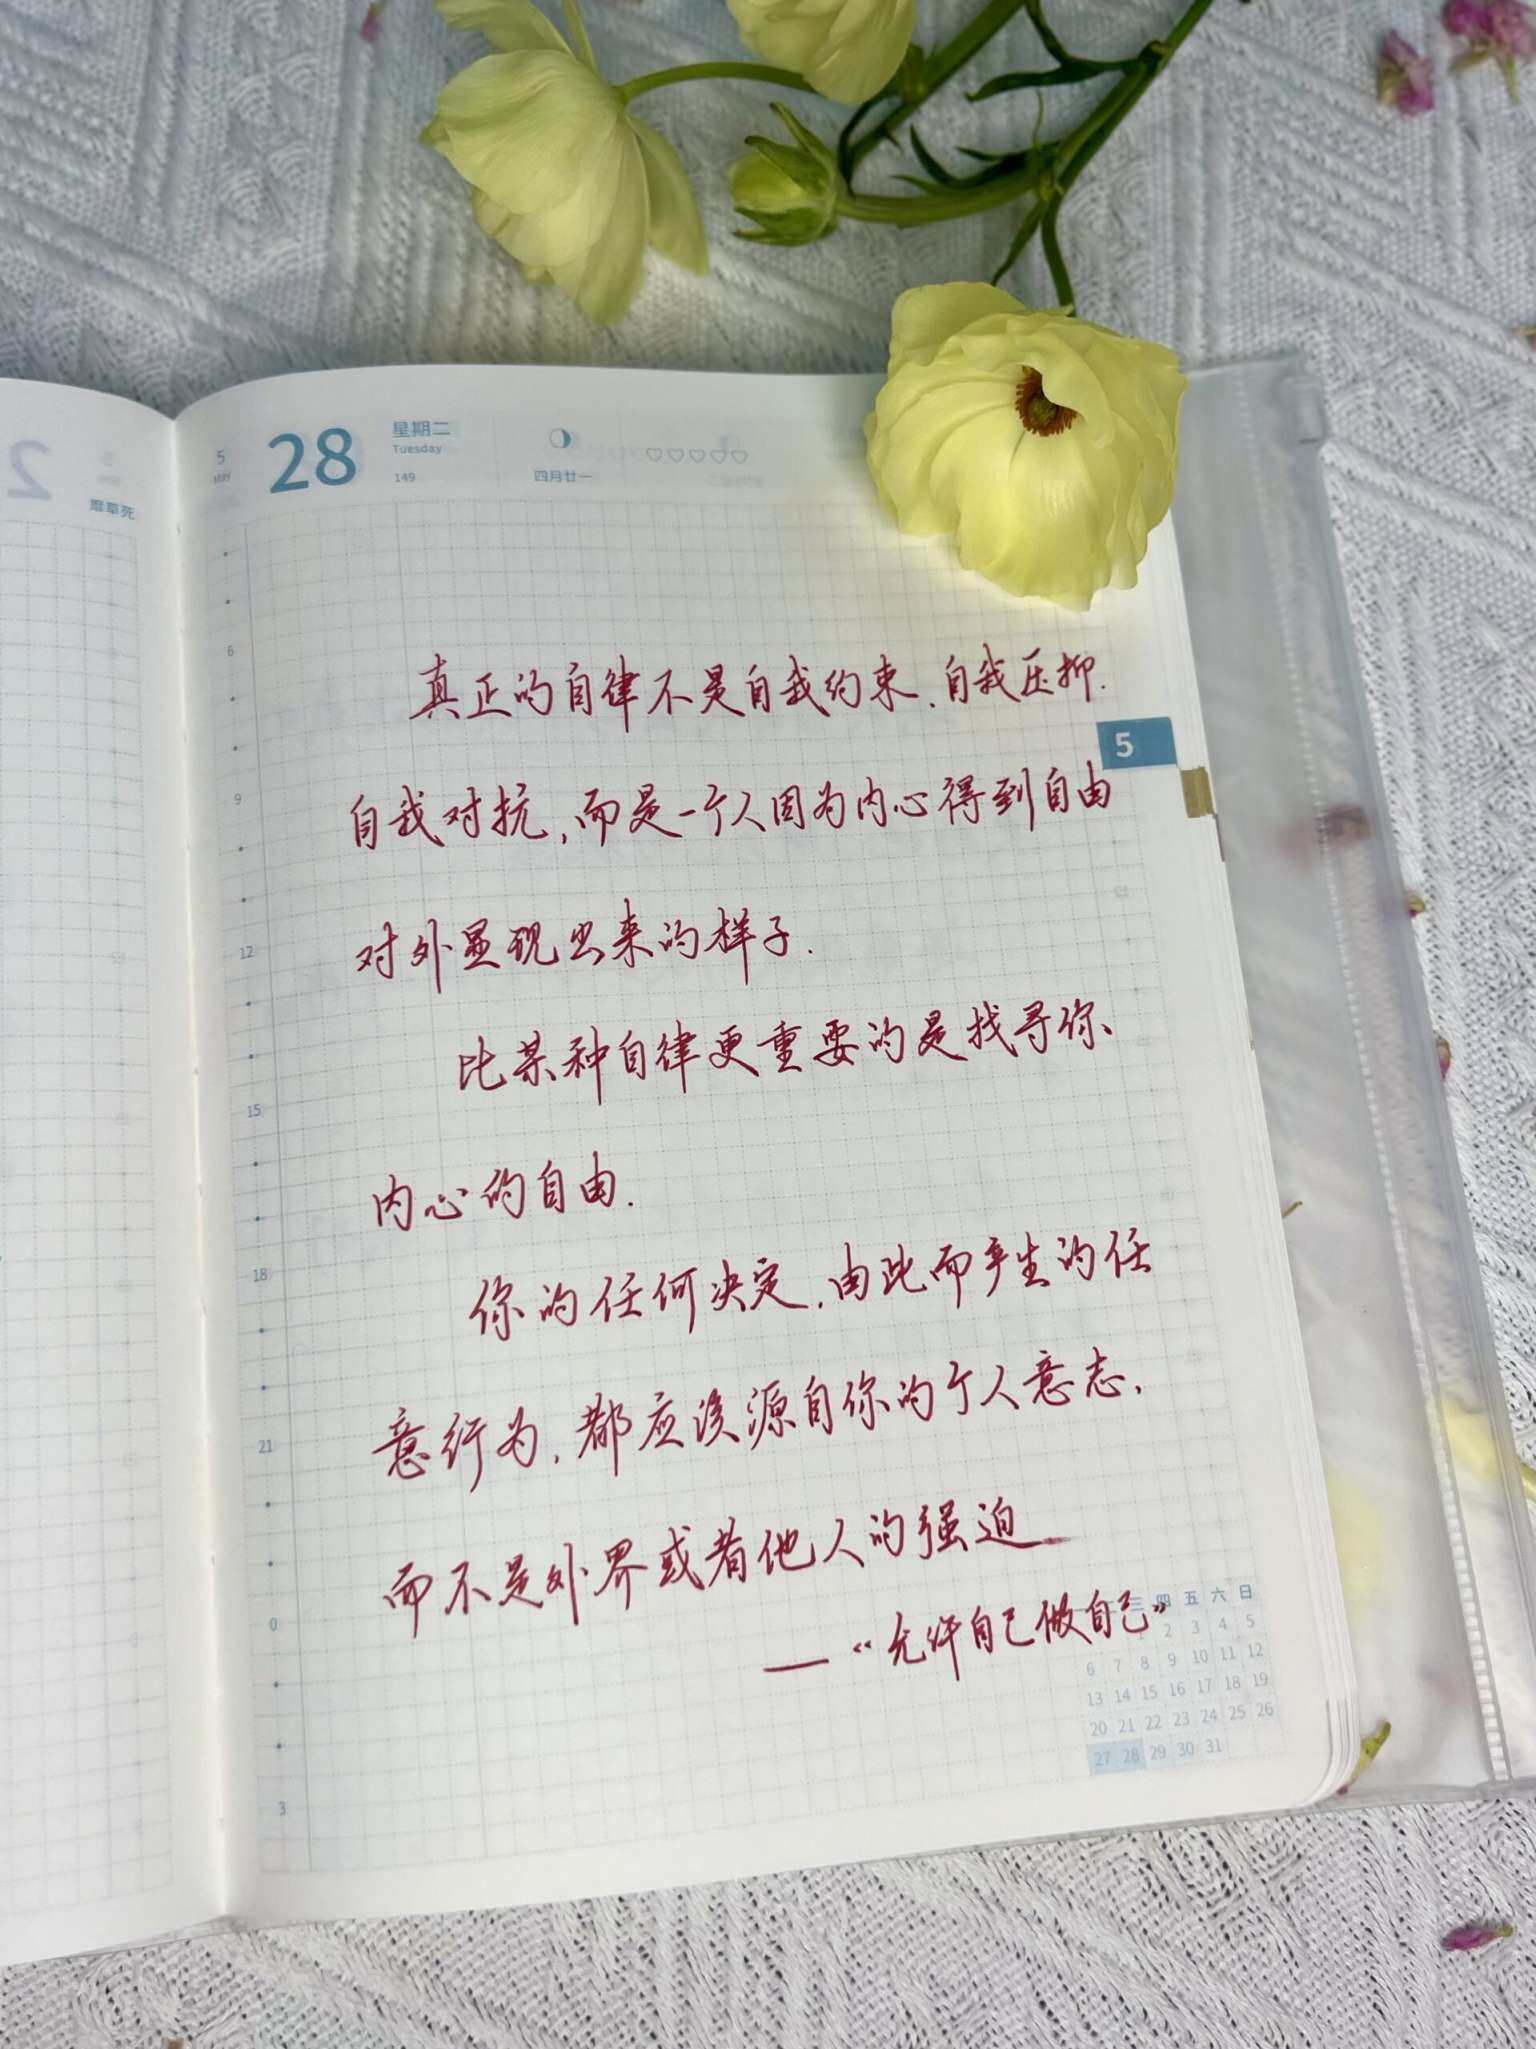 5 28 星期二
May Tuesday
149 四月廿一
2
靡草死
真正的自律不是自我约束.自我压抑.
自我对抗,而是一个人因为内心得到自由
对外显现出来的样子.
比某种自律更重要的是找寻你、
内心的自由.
你的任何决定,由此而产生的任
意行为,都应该源自你的个人意志,
而不是外界或者他人的强迫
—“允许自己做自己”
5
6
9
12
15
18
21
0
3
三 四 五 六 日
1 2 3 4 5
6 7 8 9 10 11 12
13 14 15 16 17 18 19
20 21 22 23 24 25 26
27 28 29 30 31